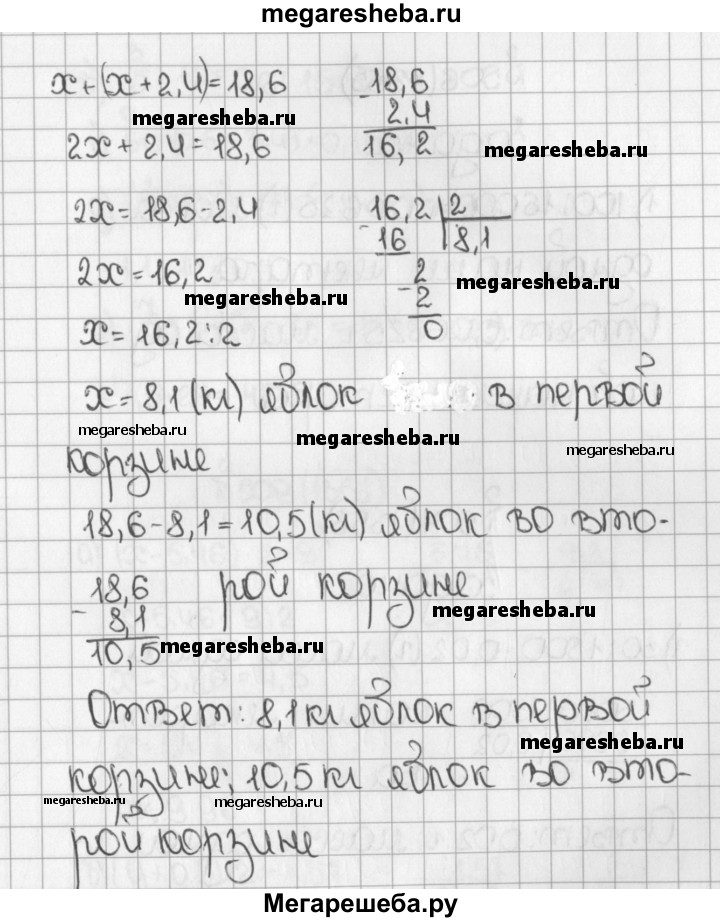 megaresheba.ru
x+(x+2,4)=18,6
megaresheba.ru
2x+2,4=18,6
18,6
- 2,4
16,2
megaresheba.ru
2x=18,6-2,4
16,2 | 2
- 16 | 8,1
2
- 2
0
megaresheba.ru
2x=16,2
megaresheba.ru
x=16,2:2
x=8,1(кг) яблок в первой
megaresheba.ru
megaresheba.ru
megaresheba.ru
корзине
18,6-8,1=10,5(кг) яблок во вто-
рой корзине
18,6
- 8,1
10,5
megaresheba.ru
megaresheba.ru
Ответ: 8,1кг яблок в первой
megaresheba.ru
корзине; 10,5кг яблок во вто-
megaresheba.ru
megaresheba.ru
рой корзине
Мегарешеба.ру